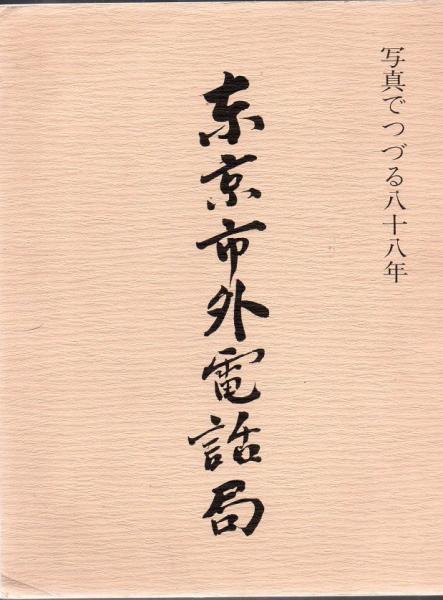 写真でつづる八十八年
東京市外電話局